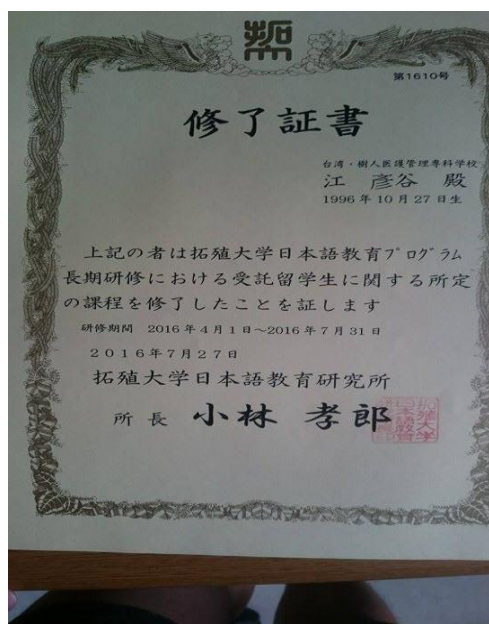 拓
第1610号
修了証書
台湾・樹人医護管理専科学校
江 彦谷 殿
1996年10月27日生
上記の者は拓殖大学日本語教育プログラム
長期研修における受託留学生に関する所定
の課程を修了したことを証します
研修期間 2016年4月1日~2016年7月31日
2016年7月27日
拓殖大学日本語教育研究所
所長 小林 孝郎